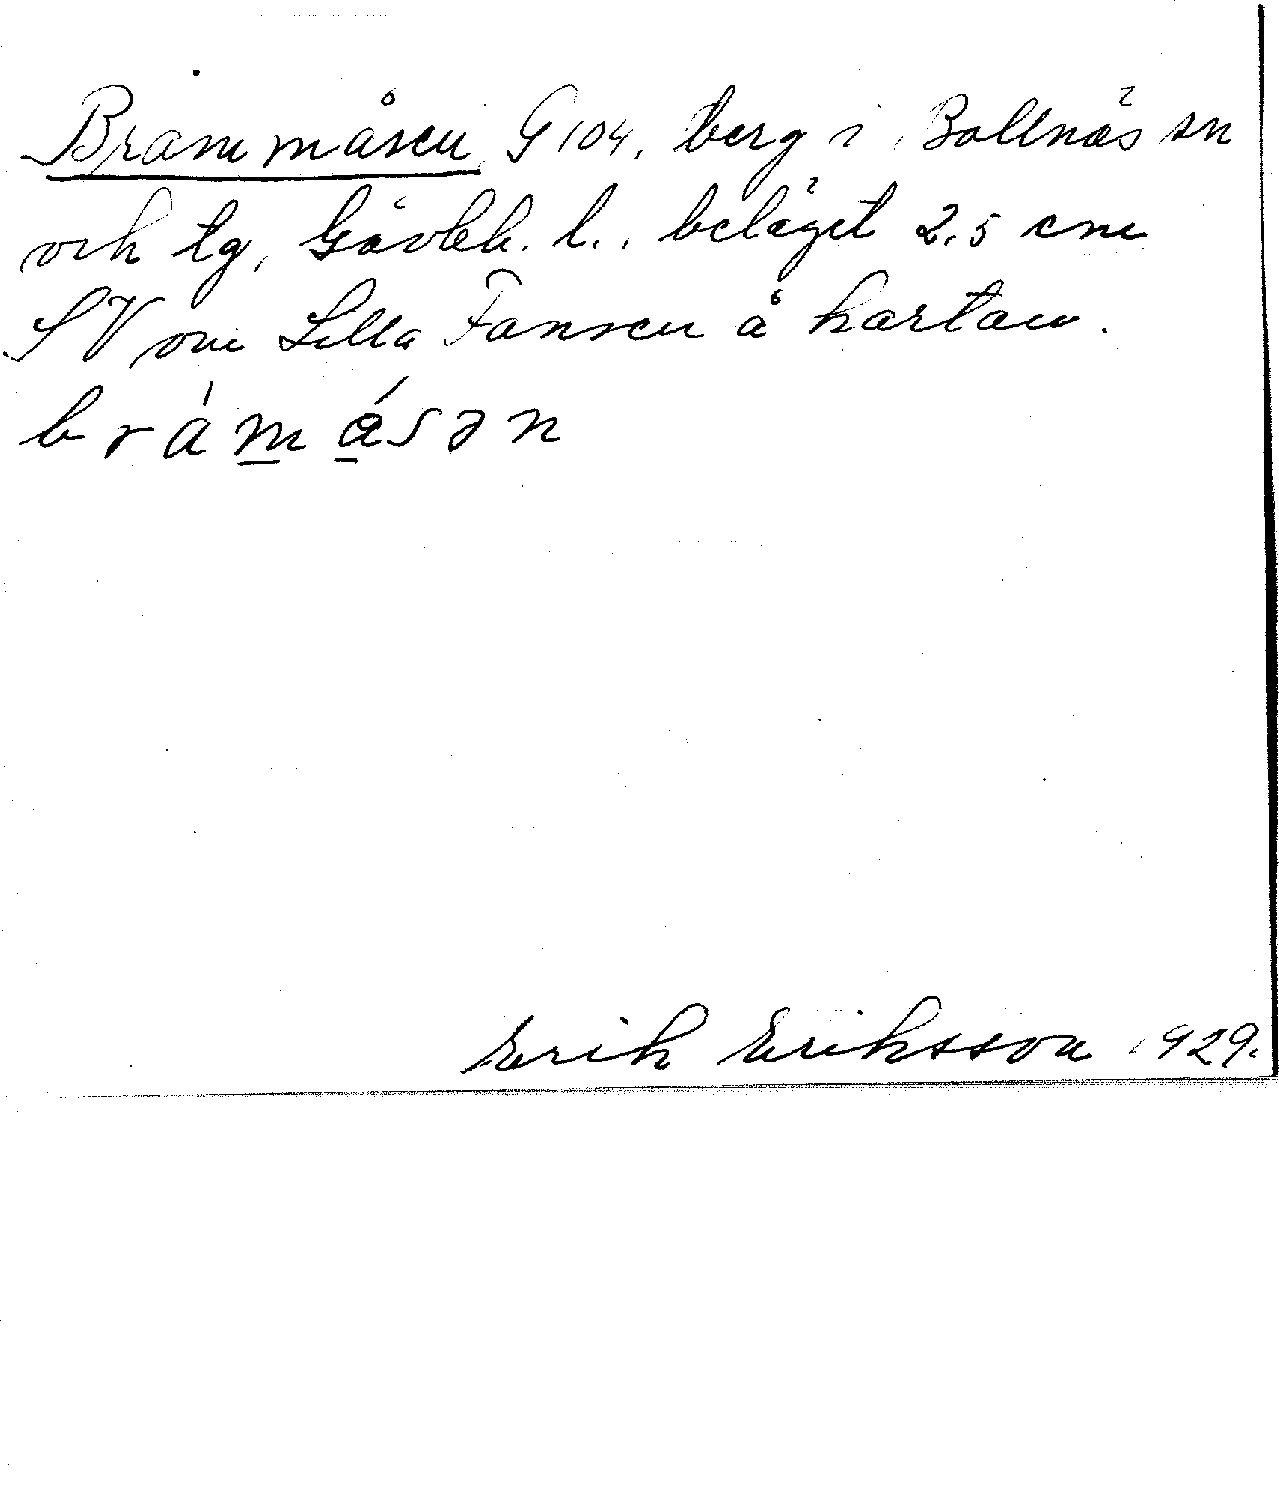 Brammåsen G 104, berg i Bollnäs sn
och tg, Gävleb. l., beläget 2,5 cm
SV om Lilla Fansen å kartan.
bràmásən
Erik Eriksson 1929.